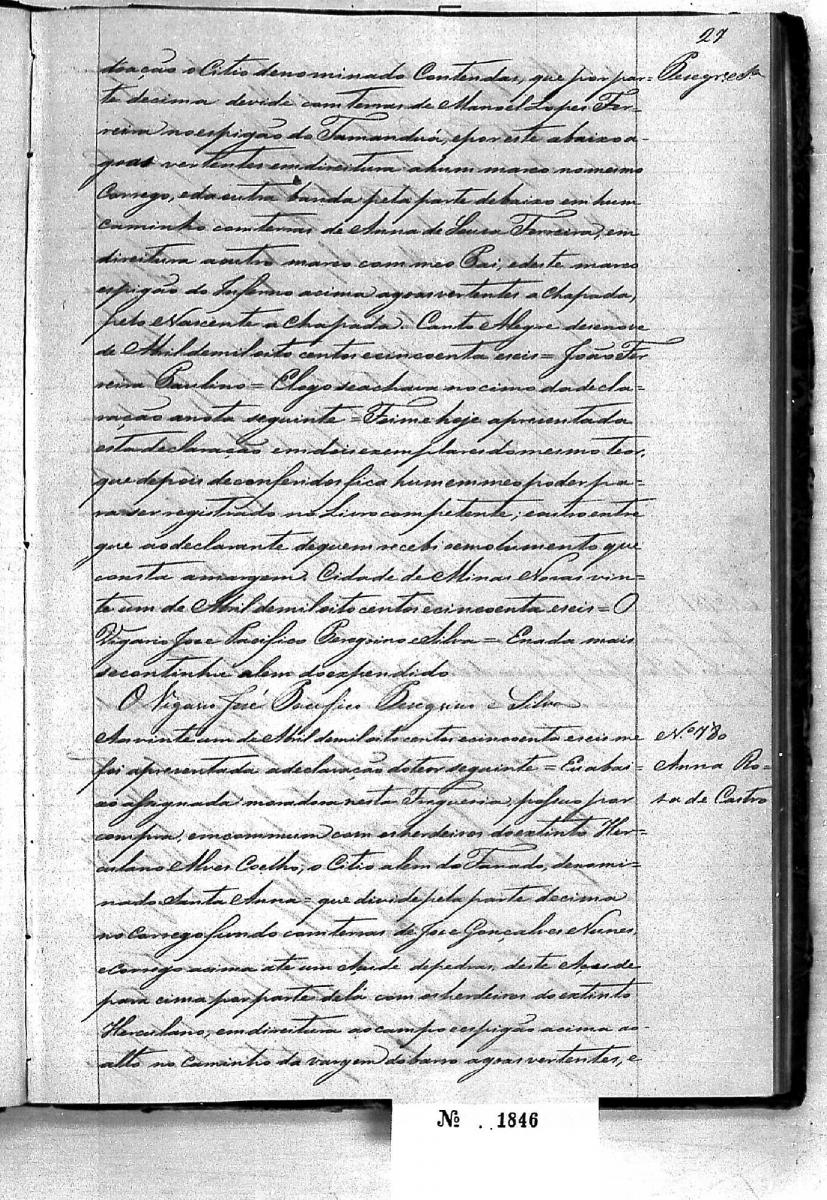 27
doação o Citio denominado Contendas, que por par=
te decima devide com terras de Manoel Lopes Fer-
reira no espigão do Tamanduá, e por este abaixo a-
goas vertentes em direitura a hum marco no mesmo
Corrego, e da outra banda pela parte debaixo em hum
caminho com terras de Anna de Souza Ferreira, em
direitura a outro marco com meo Pai, e deste marco
espigão do Inferno acima agoas vertentes a Chapada,
pelo Nascente a Chapada. Canto Alegre desenove
de Abril de mil oito centos e cincoenta e seis = João Fer
reira Paulino = E logo se achava no cimo da decla-
ração a nota seguinte = Foi me hoje apresentada
esta declaração em dois exemplares do mesmo teor,
que depois de conferidos fica hum em meo poder pa-
ra ser registrado no Livro competente; e outro entre
que ao declarante de quem recebi o emolumento que
consta a margem. Cidade de Minas Novas vin-
te um de Abril de mil oito centos e cincoenta e seis = O
Vigario Jose Pacifico Peregrino e Silva = E nada mais
se continha alem do expendido.
O Vigario José Pacifico Peregrino e Silva
Aos vinte um de Abril de mil oito centos e cincoenta e seis me
foi apresentada a declaração do teor seguinte = Eu abai-
xo assignada moradora nesta Freguesia, possuo por
compra, em commum com os herdeiros do extinto Her-
culano Alves Coelho, o Citio alem do Fanado, denomi-
nado Santa Anna = que divide pela parte decima
no Corrego fundo com terras de Jose Gonçalves Nunes,
e Corrego acima até um Asude de pedras, deste Asude
para cima por parte de lá com os herdeiros do extinto
Herculano, em direitura ao campo e espigão acima ao
alto no caminho da vargem do barro agoas vertentes, e
Peregr.º e Sa
N.º 78
Anna Ro-
sa de Castro
Nº 1846